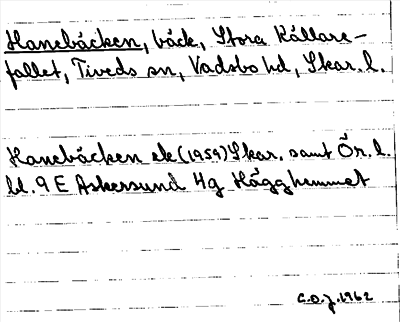 Hanebäcken, bäck, Stora Kållare-
fallet, Tiveds sn, Vadsbo hd, Skar. l.
Hanebäcken ek (1959) Skar. samt Ör. l.
bl. 9 E Askersund 4g Hägghemmet
C.O.J. 1962